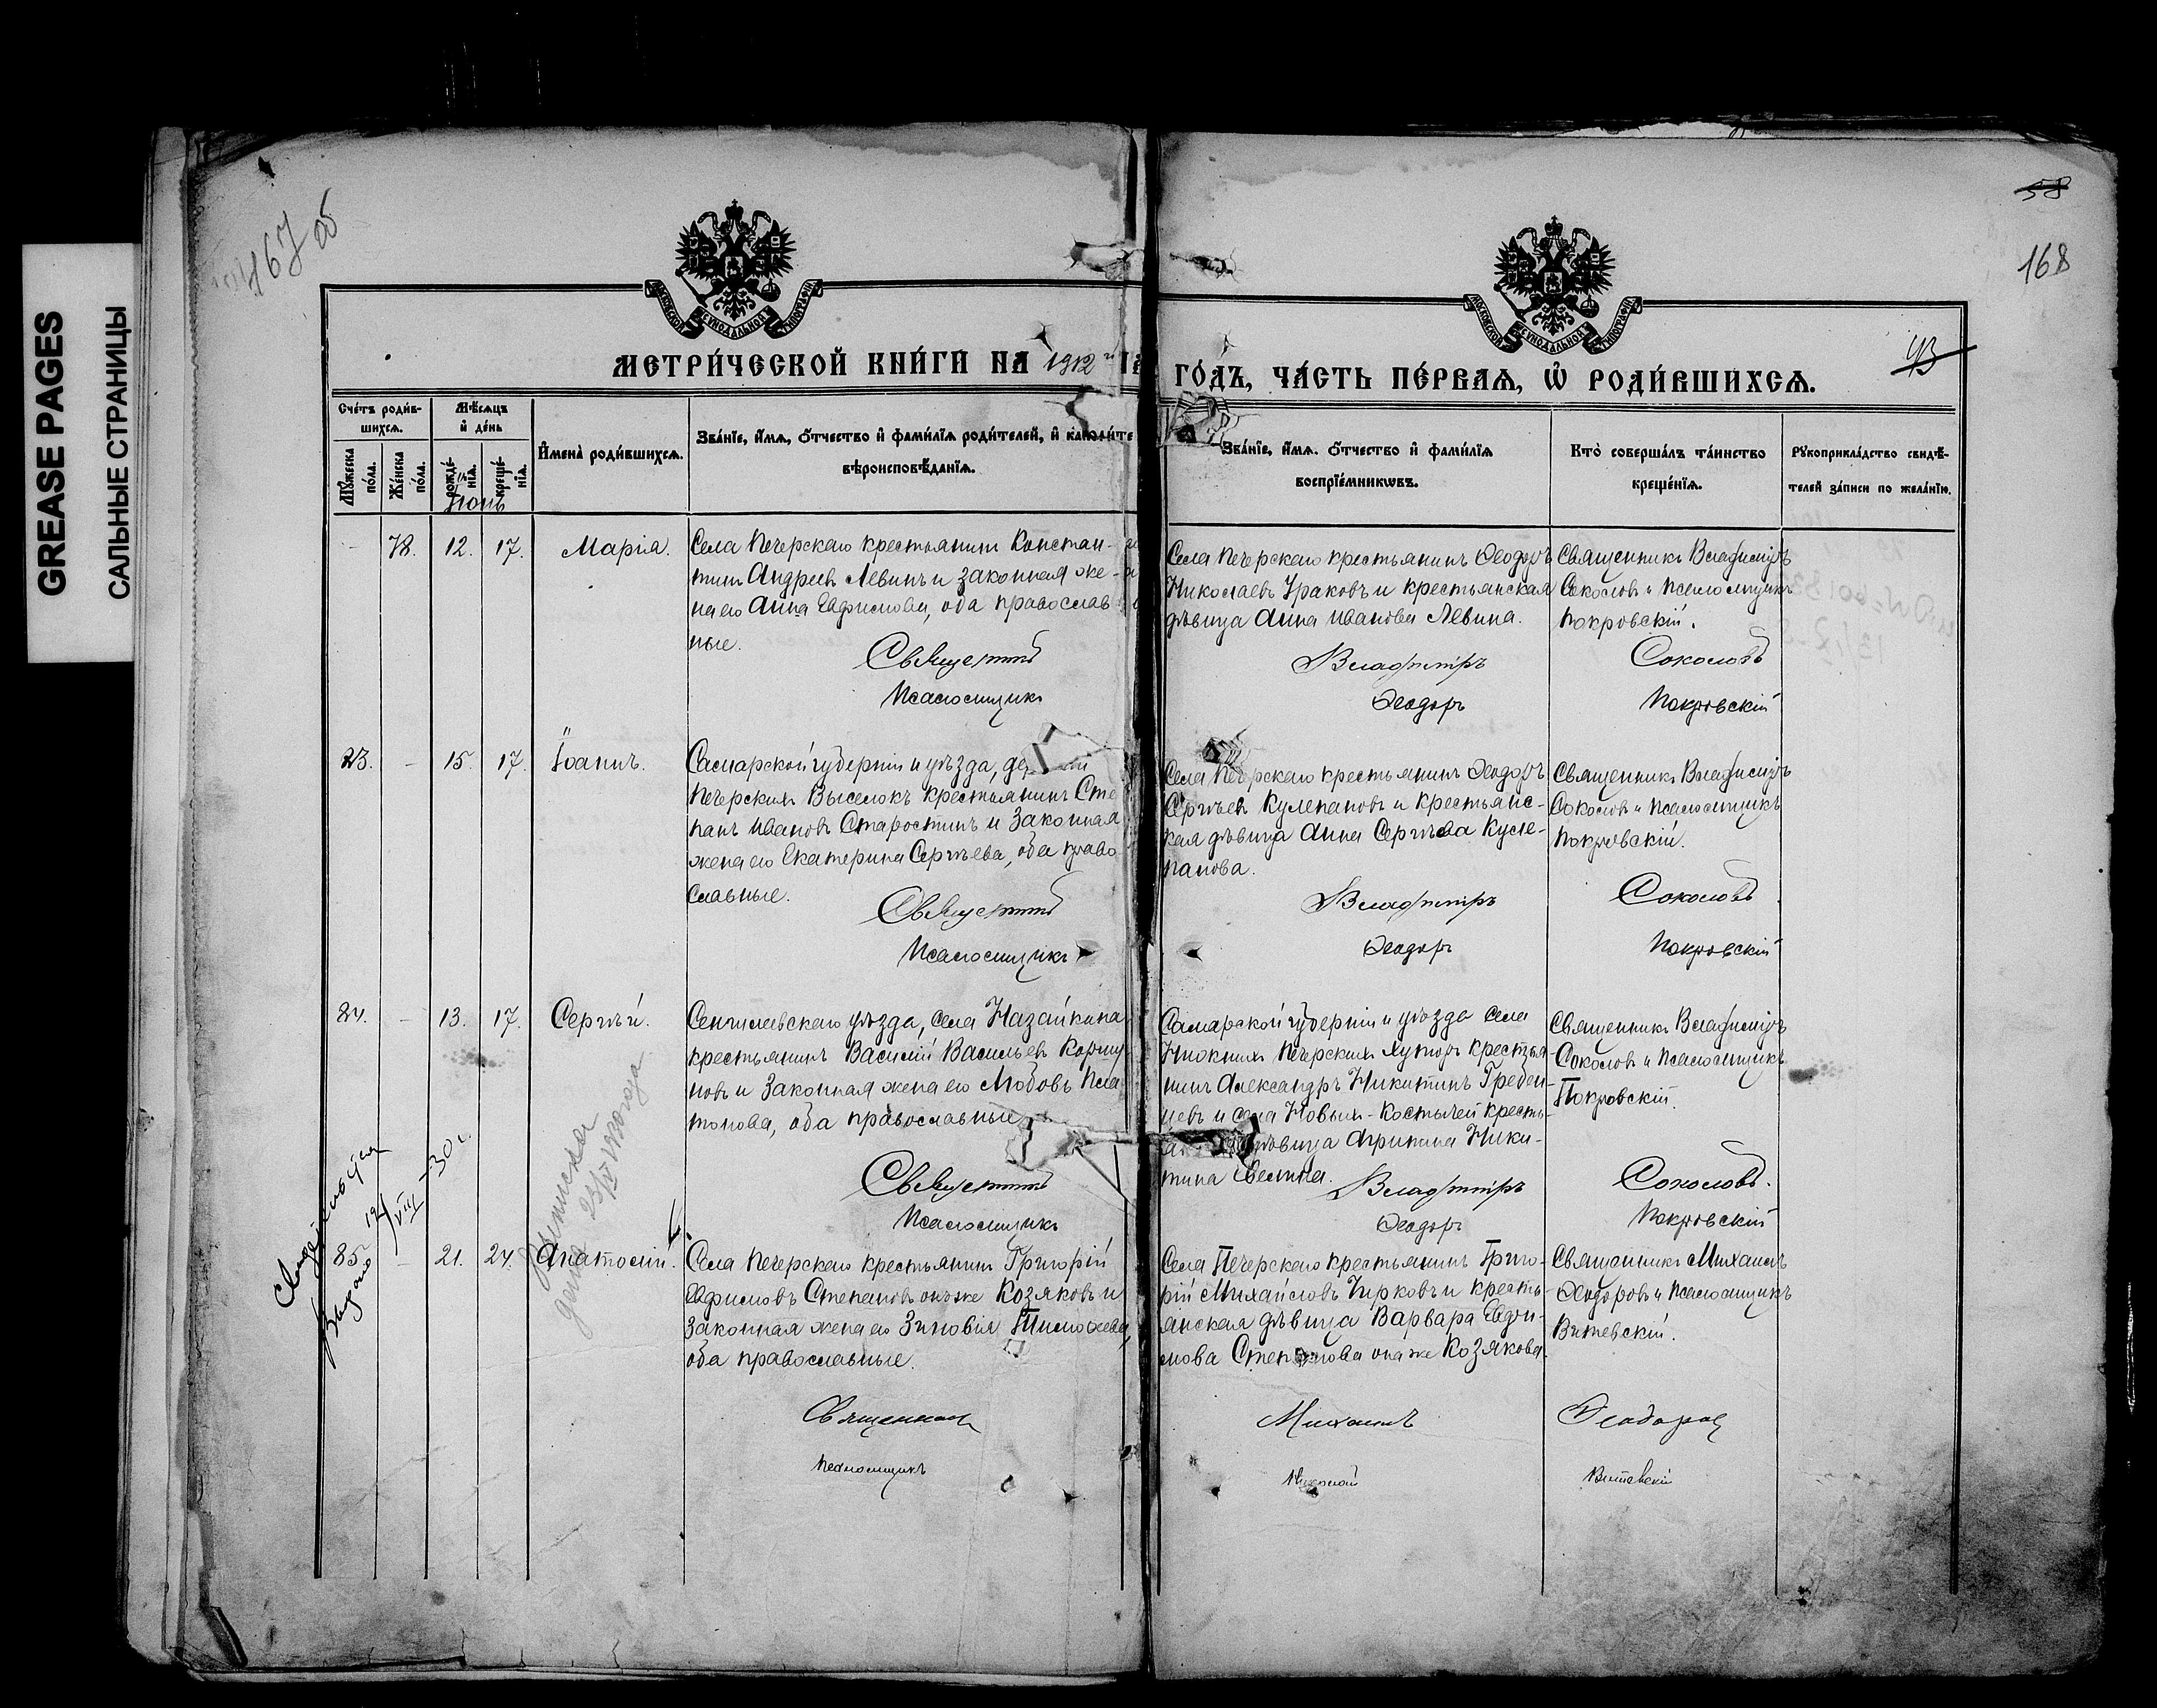 GREASE PAGES
САЛЬНЫЕ СТРАНИЦЫ
467 об
58
168
43
МОСКОВСКОЙ СѴНОДАЛЬНОЙ ТИПОГРАФІИ
МОСКОВСКОЙ СѴНОДАЛЬНОЙ ТИПОГРАФІИ
МЕТРИ́ЧЕСКОЙ КНИ́ГИ НА 1912 й
ГО́ДЪ, ЧА́СТЬ ПЕ́РВАѦ, Ѿ РОДИ́ВШИХСѦ.
Сче́тъ роди́в-
шихсѧ.
Мѣ́сѧцъ
и҆ де́нь
Мꙋ́жеска по́ла.
Же́нска по́ла.
рожде́-
нїѧ.
креще́-
нїѧ.
И҆мена̀ роди́вшихсѧ.
Зва́нїе, и҆́мѧ, ѻ҆́тчество и҆ фами́лїѧ роди́телей, и҆
вѣроисповѣ́данїѧ.
Зва́нїе, и҆́мѧ, ѻ҆́тчество и҆ фами́лїѧ
воспрїе́мникѡвъ.
Кто̀ соверша́лъ та́инство
креще́нїѧ.
Рꙋкоприкла́дство свидѣ́-
телей за́писи по жела́нїю.
Іюнь
78. 12. 17. Марія.
Села Печерскаго крестьянинъ Констан-
тинъ Андреевъ Левинъ и законная же-
на его Анна Евфимова, оба православ
ные.
Священникъ
Псаломщикъ
Села Печерскаго крестьянинъ Ѳеодоръ
Николаевъ Ураковъ и крестьянская
дѣвица Анна Иванова Левина.
Владиміръ
Ѳеодоръ
Священникъ Владиміръ
Соколовъ и Псаломщикъ
Покровскій.
Соколовъ
Покровскій
83. – 15. 17. Іоаннъ.
Самарской губерніи и уѣзда,
Печерскихъ Выселокъ крестьянинъ Сте
панъ Ивановъ Старостинъ и законная
жена его Екатерина Сергѣева, оба право
славные.
Священникъ
Псаломщикъ
Села Печерскаго крестьянинъ Ѳеодоръ
Сергѣевъ Кулепановъ и крестьянс-
кая дѣвица Анна Сергѣева Куле-
панова.
Владиміръ
Ѳеодоръ
Священникъ Владиміръ
Соколовъ и Псаломщикъ
Покровскій.
Соколовъ
Покровскій
84. – 13. 17. Сергѣй.
Сенгилеевскаго уѣзда, села Назайкина
крестьянинъ Василій Васильевъ Коршу-
новъ и законная жена его Любовь Пла
тонова, оба православные
Священникъ
Псаломщикъ
Самарской губерніи и уѣзда села
Нижнихъ Печерскихъ хуторъ крестья-
нинъ Александръ Никитинъ Гребен-
цевъ и села Новыхъ-Костычей кресть-
дѣвица Агрипина Ники-
тина
Владиміръ
Ѳеодоръ
Священникъ Владиміръ
Соколовъ и Псаломщикъ
Покровскій.
Соколовъ.
Покровскій
Выписка
дана 23/IV года
Выдано
VIII – 30 г.
85. – 21. 24. Анатолій.
Села Печерскаго крестьянинъ Григорій
Евфимовъ Степановъ онъ же Козяковъ и
законная жена его Зиновія Тимоѳеева,
оба православные.
Священникъ
Псаломщикъ
Села Печерскаго крестьянинъ Григо-
рій Михайловъ Чирковъ и кресть-
янская дѣвица Варвара Евфи-
мова Степанова она же Козякова.
Михаилъ
Николай
Священникъ Михаилъ
Ѳеодоровъ и Псаломщикъ
Витевскій.
Ѳеодоровъ
Витевскій